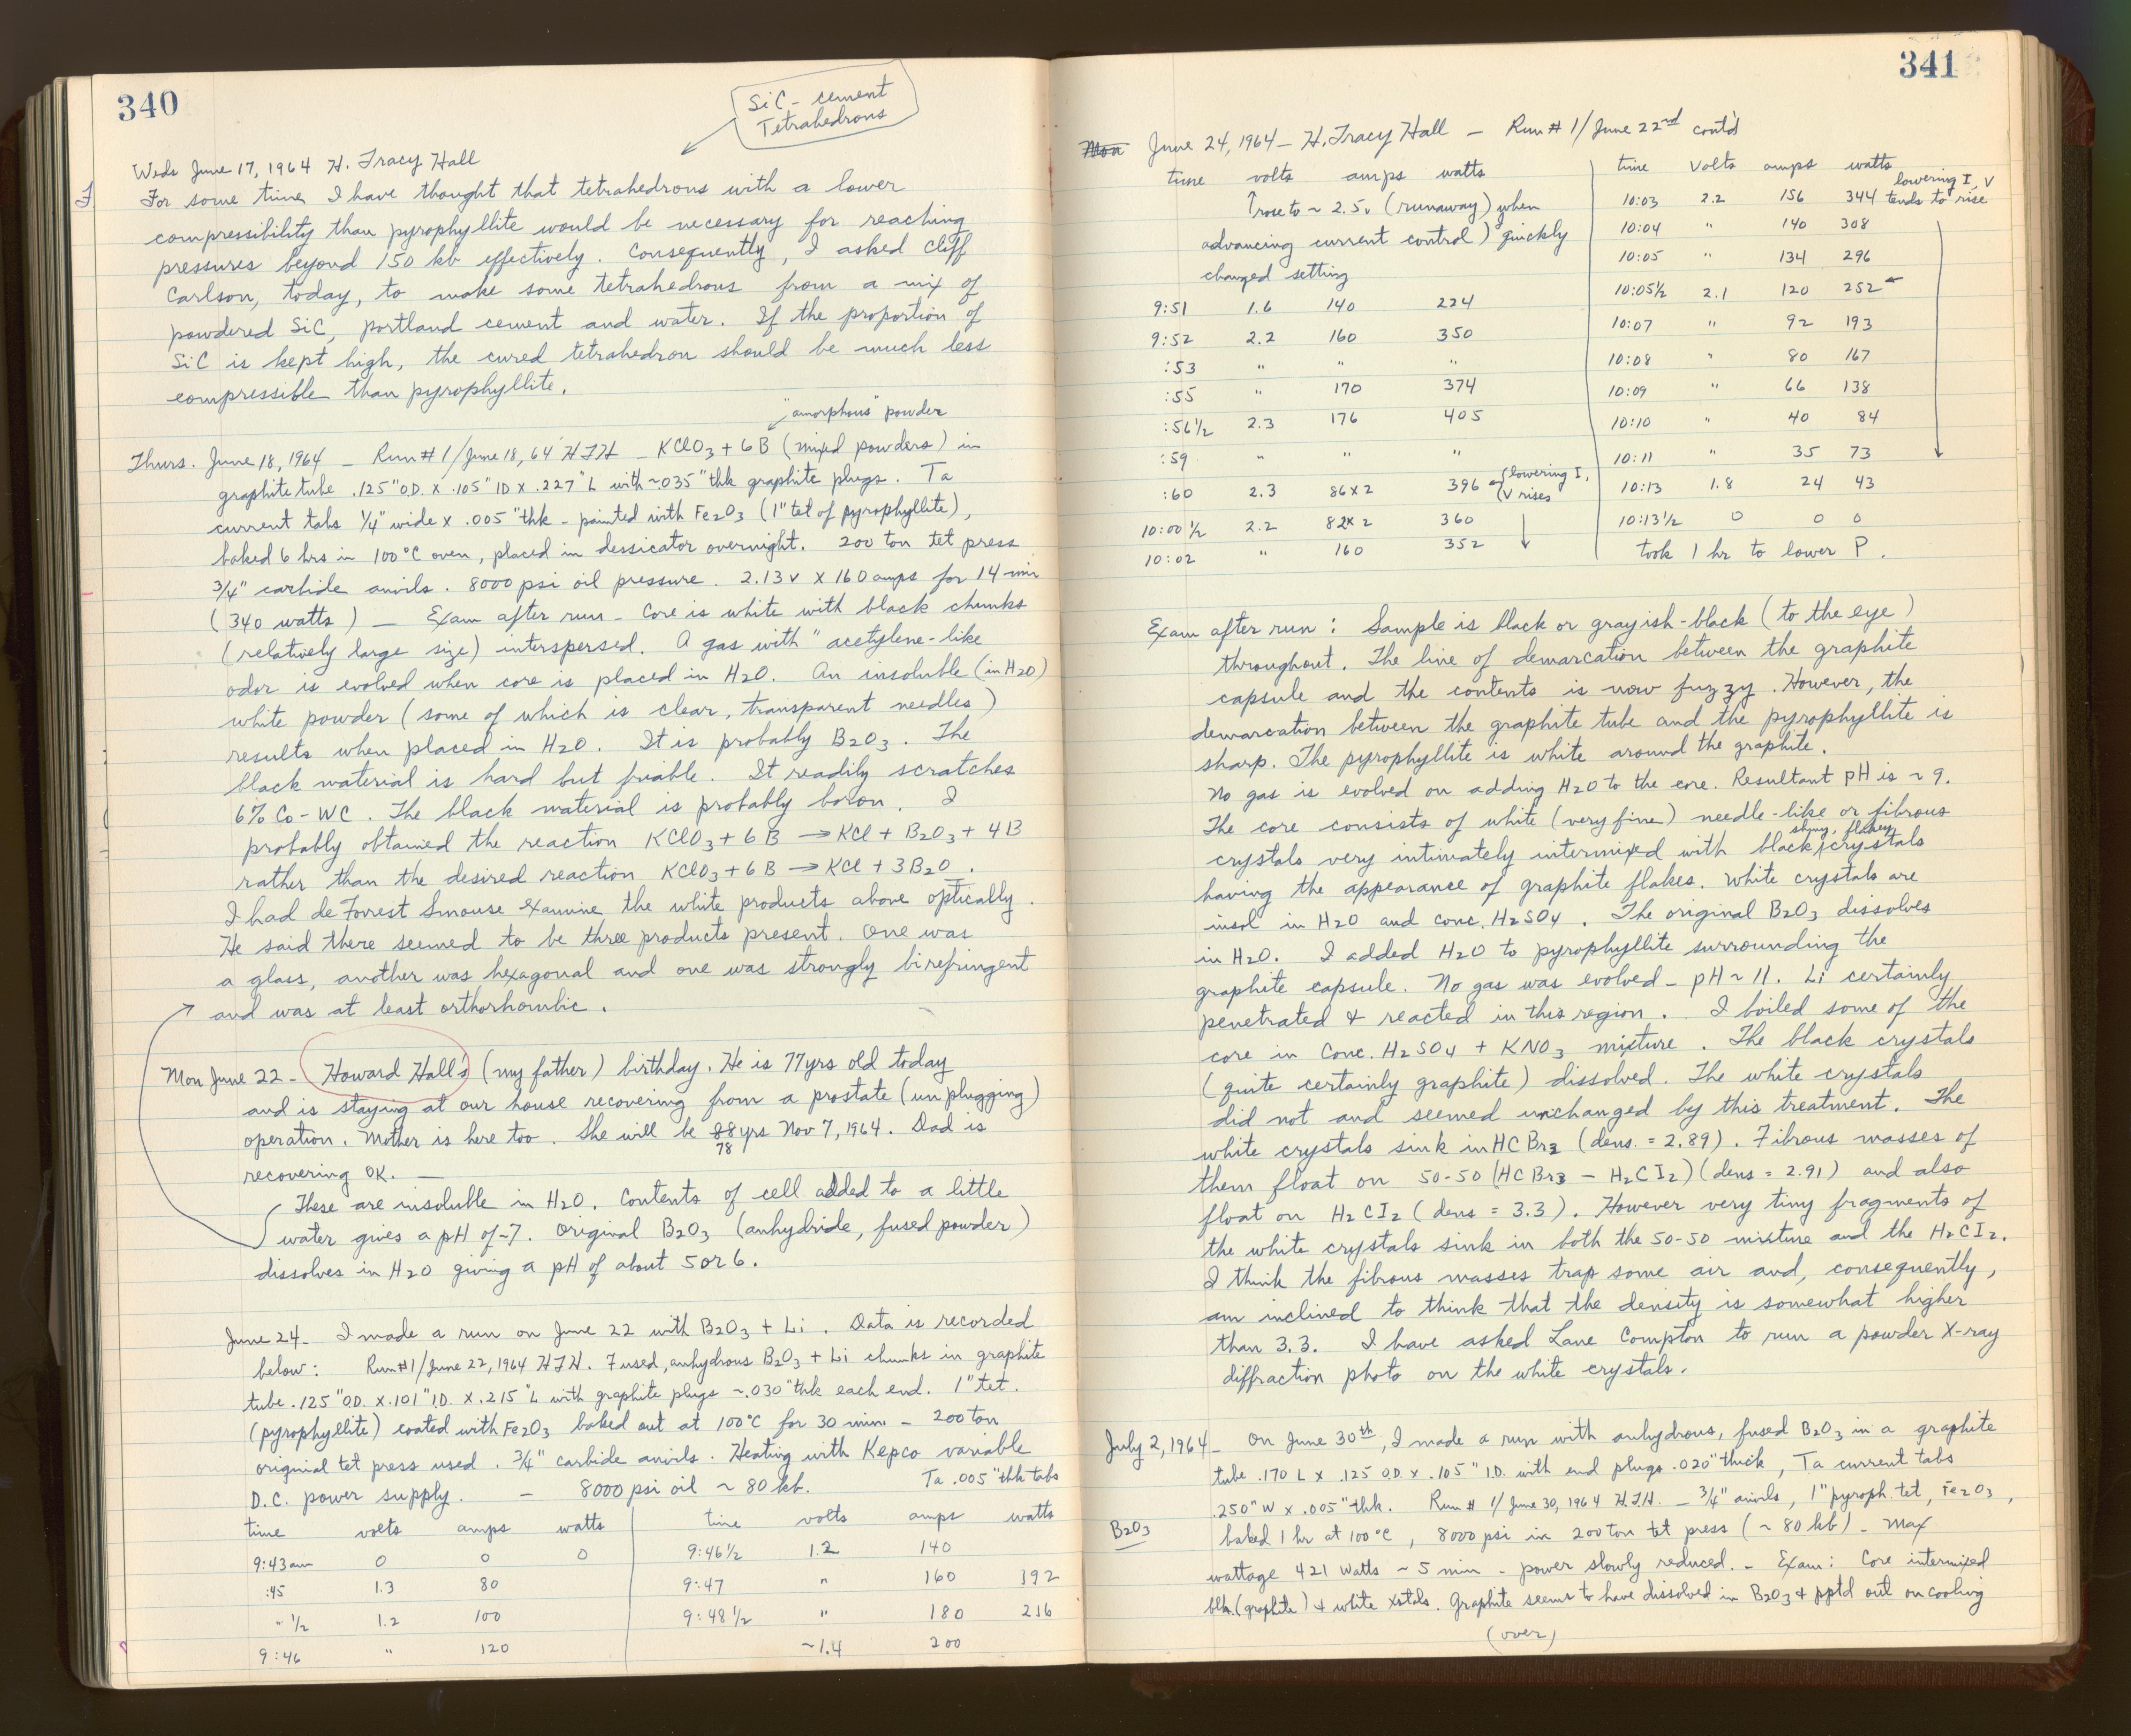 340
SiC - cement
Tetrahedrons
Weds June 17, 1964 H. Tracy Hall
For some time I have thought that tetrahedrons with a lower
compressibility than pyrophyllite would be necessary for reaching
pressures beyond 150 kb effectively. Consequently, I asked Cliff
Carlson, today, to make some tetrahedrons from a mix of
powdered SiC, portland cement and water. If the proportion of
SiC is kept high, the cured tetrahedron should be much less
compressible than pyrophyllite.
"amorphous" powder
Thurs. June 18, 1964 - Run #1/June 18, 64 HTH - KClO3 + 6B (mixed powders) in
graphite tube .125" O.D. x .105" ID x .227" L with ~.035" thk graphite plugs. Ta
current tabs 1/4" wide x .005" thk - painted with Fe2O3 (1" tet of pyrophyllite),
baked 6 hrs in 100°C oven, placed in dessicator overnight. 200 ton tet press
3/4" carbide anvils. 8000 psi oil pressure. 2.13 v x 160 amps for 14 min
(340 watts) - Exam after run - Core is white with black chunks
(relatively large size) interspersed. A gas with "acetylene-like
odor is evolved when core is placed in H2O. An insoluble (in H2O)
white powder (some of which is clear, transparent needles)
results when placed in H2O. It is probably B2O3. The
black material is hard but friable. It readily scratches
6% Co-WC. The black material is probably boron. I
probably obtained the reaction KClO3 + 6B → KCl + B2O3 + 4B
rather than the desired reaction KClO3 + 6B → KCl + 3B2O.
I had deForrest Smouse examine the white products above optically.
He said there seemed to be three products present. One was
a glass, another was hexagonal and one was strongly birefringent
and was at least orthorhombic.
Mon June 22 - Howard Hall's (my father) birthday. He is 77yrs old today
and is staying at our house recovering from a prostate (unplugging)
operation. Mother is here too. She will be 88yrs Nov 7, 1964. Dad is
78
recovering OK. -
These are insoluble in H2O. Contents of cell added to a little
water gives a pH of ~7. Original B2O3 (anhydride, fused powder)
dissolves in H2O giving a pH of about 5 or 6.
June 24 - I made a run on June 22 with B2O3 + Li. Data is recorded
below: Run #1/June 22, 1964 HTH. Fused, anhydrous B2O3 + Li chunks in graphite
tube .125" O.D. x .101" I.D. x .215" L with graphite plugs ~.030" thk each end. 1" tet.
(pyrophyllite) coated with Fe2O3 baked out at 100°C for 30 min. - 200 ton
original tet press used. 3/4" carbide anvils. Heating with Kepco variable
D.C. power supply. - 8000 psi oil ~ 80 kb. Ta .005" thk tabs
time volts amps watts time volts amps watts
9:43am 0 0 0 9:46 1/2 1.2 140
:45 1.3 80 9:47 " 160 192
" 1/2 1.2 100 9:48 1/2 " 180 216
9:46 " 120 ~1.4 200
341
Mon June 24, 1964 - H. Tracy Hall - Run #1/June 22nd cont'd
time volts amps watts
↑rose to ~ 2.5v (runaway) when
advancing current control) quickly
changed setting
9:51 1.6 140 224
9:52 2.2 160 350
:53 " " "
:55 " 170 374
:56 1/2 2.3 176 405
:59 " " "
:60 2.3 86x2 396 ← (lowering I,
(V rises
10:00 1/2 2.2 82x2 360
10:02 " 160 352
time Volts amps watts
lowering I, V
10:03 2.2 156 344 tends to rise
10:04 " 140 308
10:05 " 134 296
10:05 1/2 2.1 120 252 ←
10:07 " 92 193
10:08 " 80 167
10:09 " 66 138
10:10 " 40 84
10:11 " 35 73
10:13 1.8 24 43
10:13 1/2 0 0 0
took 1 hr to lower P.
Exam after run: Sample is black or grayish-black (to the eye)
throughout. The line of demarcation between the graphite
capsule and the contents is now fuzzy. However, the
demarcation between the graphite tube and the pyrophyllite is
sharp. The pyrophyllite is white around the graphite.
No gas is evolved on adding H2O to the core. Resultant pH is ~ 9.
The core consists of white (very fine) needle-like or fibrous
shiny, flakey
crystals very intimately intermixed with black crystals
having the appearance of graphite flakes. White crystals are
insol in H2O and conc. H2SO4. The original B2O3 dissolves
in H2O. I added H2O to pyrophyllite surrounding the
graphite capsule. No gas was evolved - pH ~ 11. Li certainly
penetrated & reacted in this region. I boiled some of the
core in Conc. H2SO4 + KNO3 mixture. The black crystals
(quite certainly graphite) dissolved. The white crystals
did not and seemed unchanged by this treatment. The
white crystals sink in HCBr3 (dens. = 2.89). Fibrous masses of
them float on 50-50 (HCBr3 - H2CI2) (dens = 2.91) and also
float on H2CI2 (dens = 3.3). However very tiny fragments of
the white crystals sink in both the 50-50 mixture and the H2CI2.
I think the fibrous masses trap some air and, consequently,
am inclined to think that the density is somewhat higher
than 3.3. I have asked Lane Compton to run a powder X-ray
diffraction photo on the white crystals.
July 2, 1964 - On June 30th, I made a run with anhydrous, fused B2O3 in a graphite
tube .170 L x .125 O.D. x .105" I.D. with end plugs .020" thick, Ta current tabs
.250" W x .005" thk. Run # 1/June 30, 1964 HTH. - 3/4" anvils, 1" pyroph. tet, Fe2O3,
B2O3
baked 1 hr at 100°C, 8000 psi in 200 ton tet press (~ 80 kb) - Max
wattage 421 Watts ~ 5 min - power slowly reduced. - Exam: Core intermixed
blk. (graphite) & white xstals. Graphite seems to have dissolved in B2O3 & pptd out on cooling
(over)